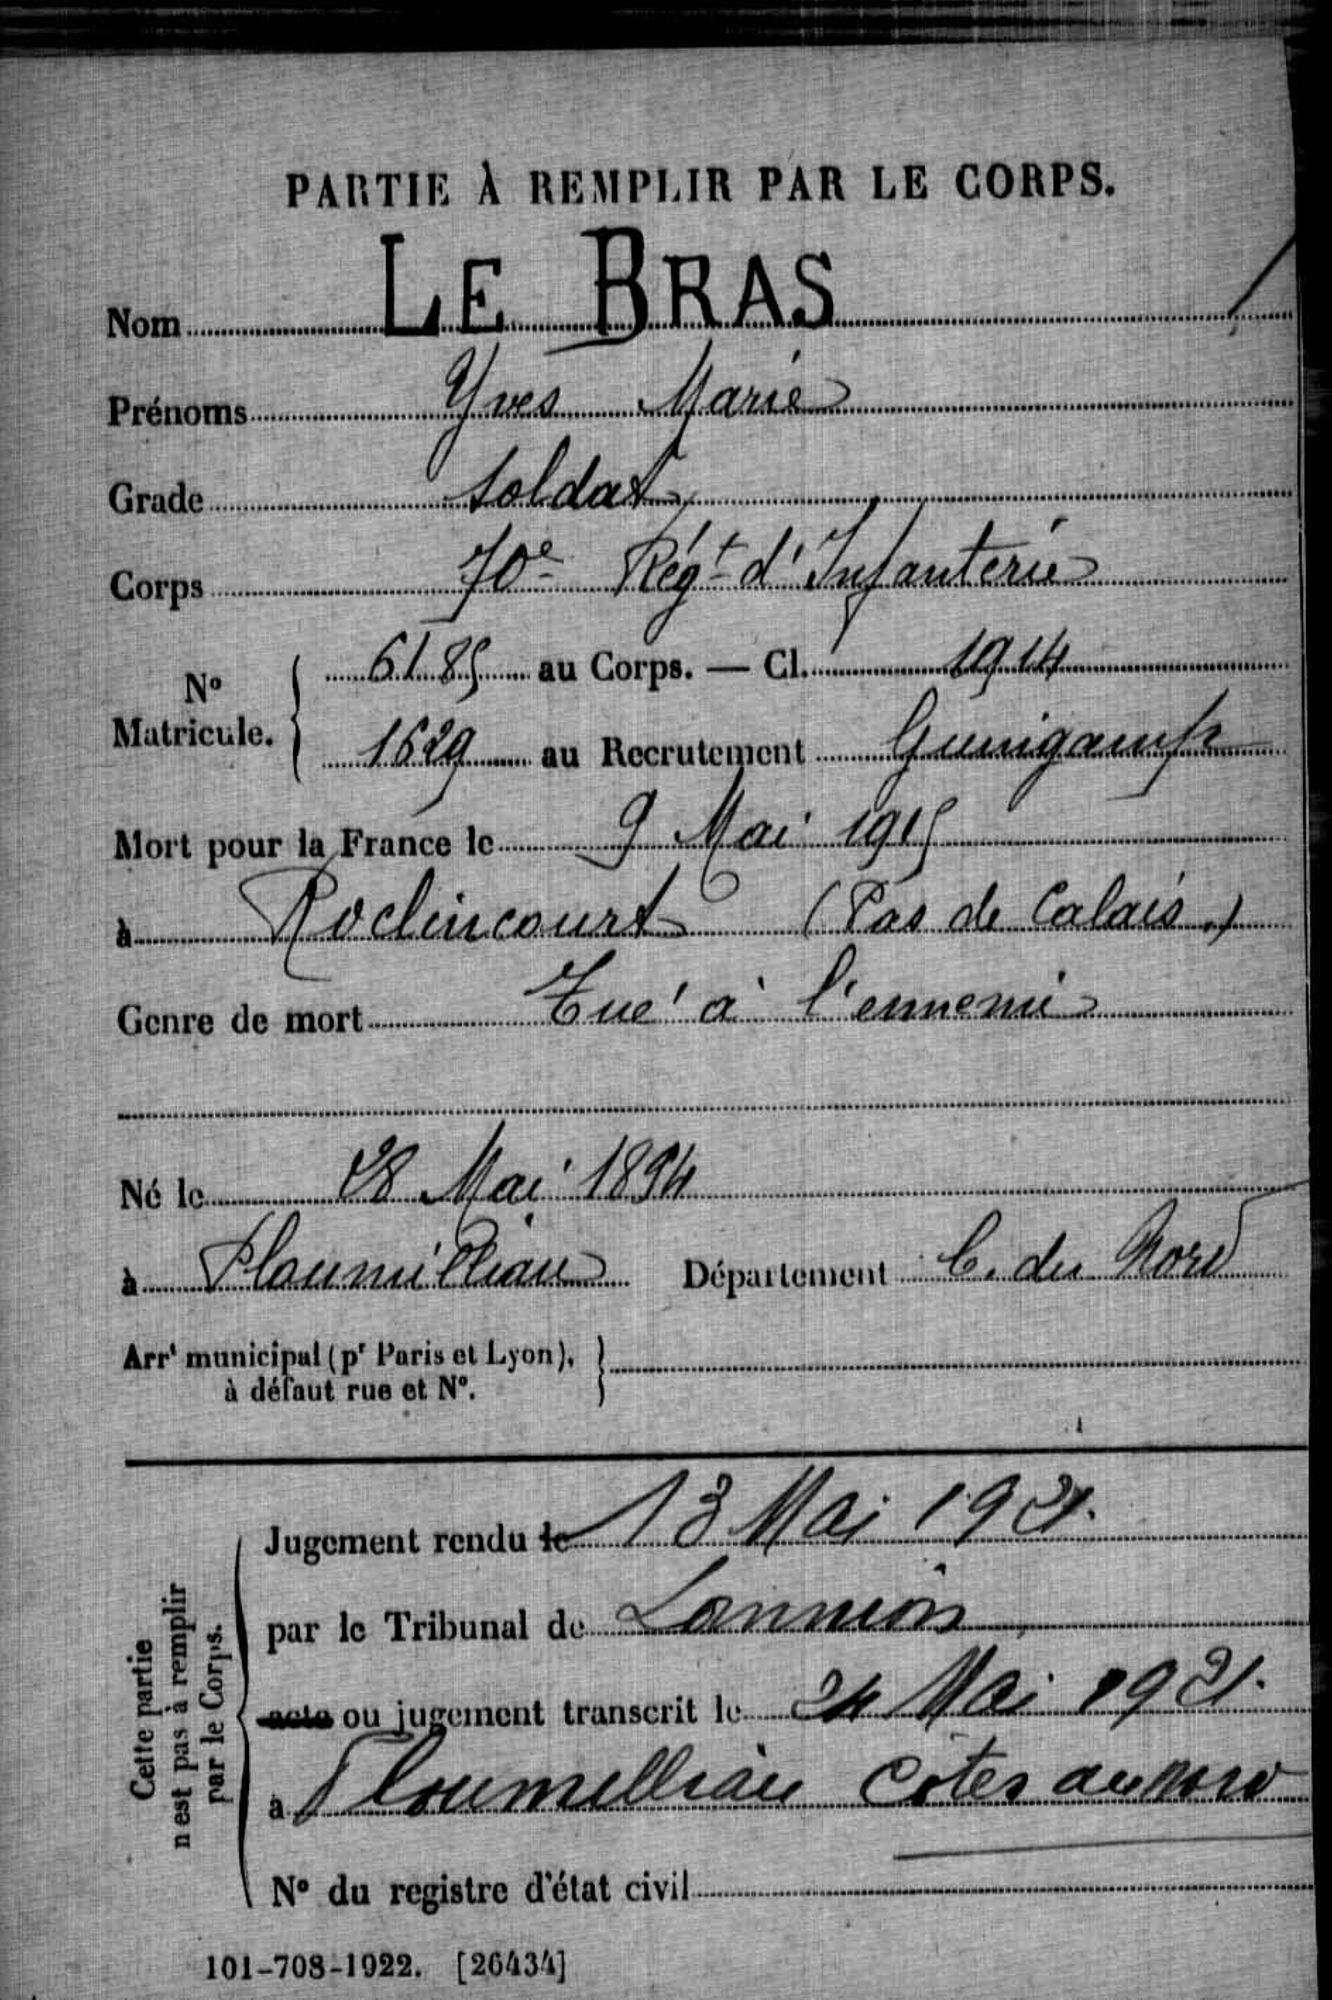 PARTIE À REMPLIR PAR LE CORPS.
Nom LE BRAS
Prénoms Yves Marie
Grade Soldat
Corps 70e Régt d'Infanterie
No Matricule. { 6185 au Corps. — Cl. 1914
1629 au Recrutement Guingamp
Mort pour la France le 9 Mai 1915
à Roclincourt (Pas de Calais.)
Genre de mort Tué à l'ennemi
Né le 28 Mai 1894
à Ploumilliau Département C. du Nord
Arrt municipal (pr Paris et Lyon), }
à défaut rue et No.
Cette partie
n'est pas à remplir
par le Corps.
Jugement rendu le 13 Mai 1921.
par le Tribunal de Lannion
acte ou jugement transcrit le 24 Mai 1921.
à Ploumilliau Côtes du Nord
No du registre d'état civil
101-708-1922. [26434]